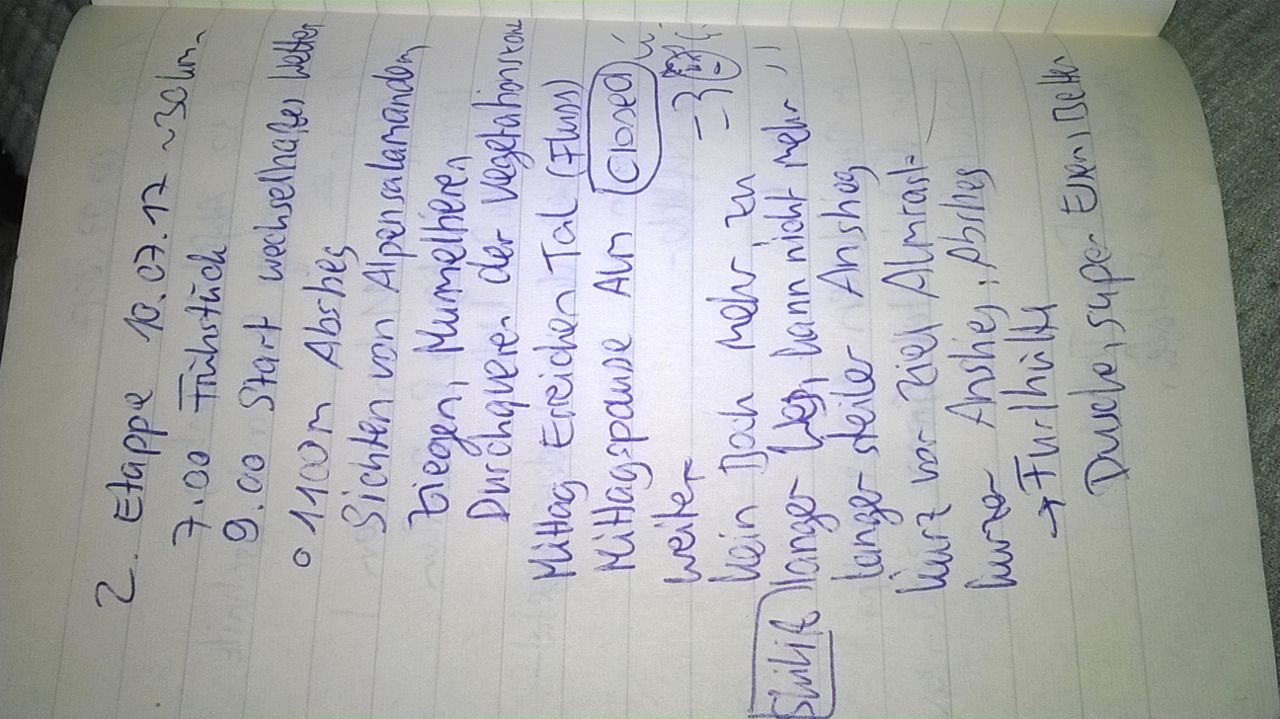 2. Etappe 10.07.17 ~30km
7.00 Frühstück
9.00 Start wechselhaftes Wetter
1100m Abstieg
Sichten von Alpensalamandern,
Ziegen, Murmeltieren
Durchqueren der Vegetationszone
Mittag Erreichen Tal (Fluss)
Mittagspause Alm Closed
weiter
kein Bock mehr, zu
Skilift langer Weg, kann nicht mehr
langer steiler Anstieg
kurz vor Ziel Almrast
kurzer Anstieg, Abstieg
→ Furthütte
Dusche, super Essen, Betten